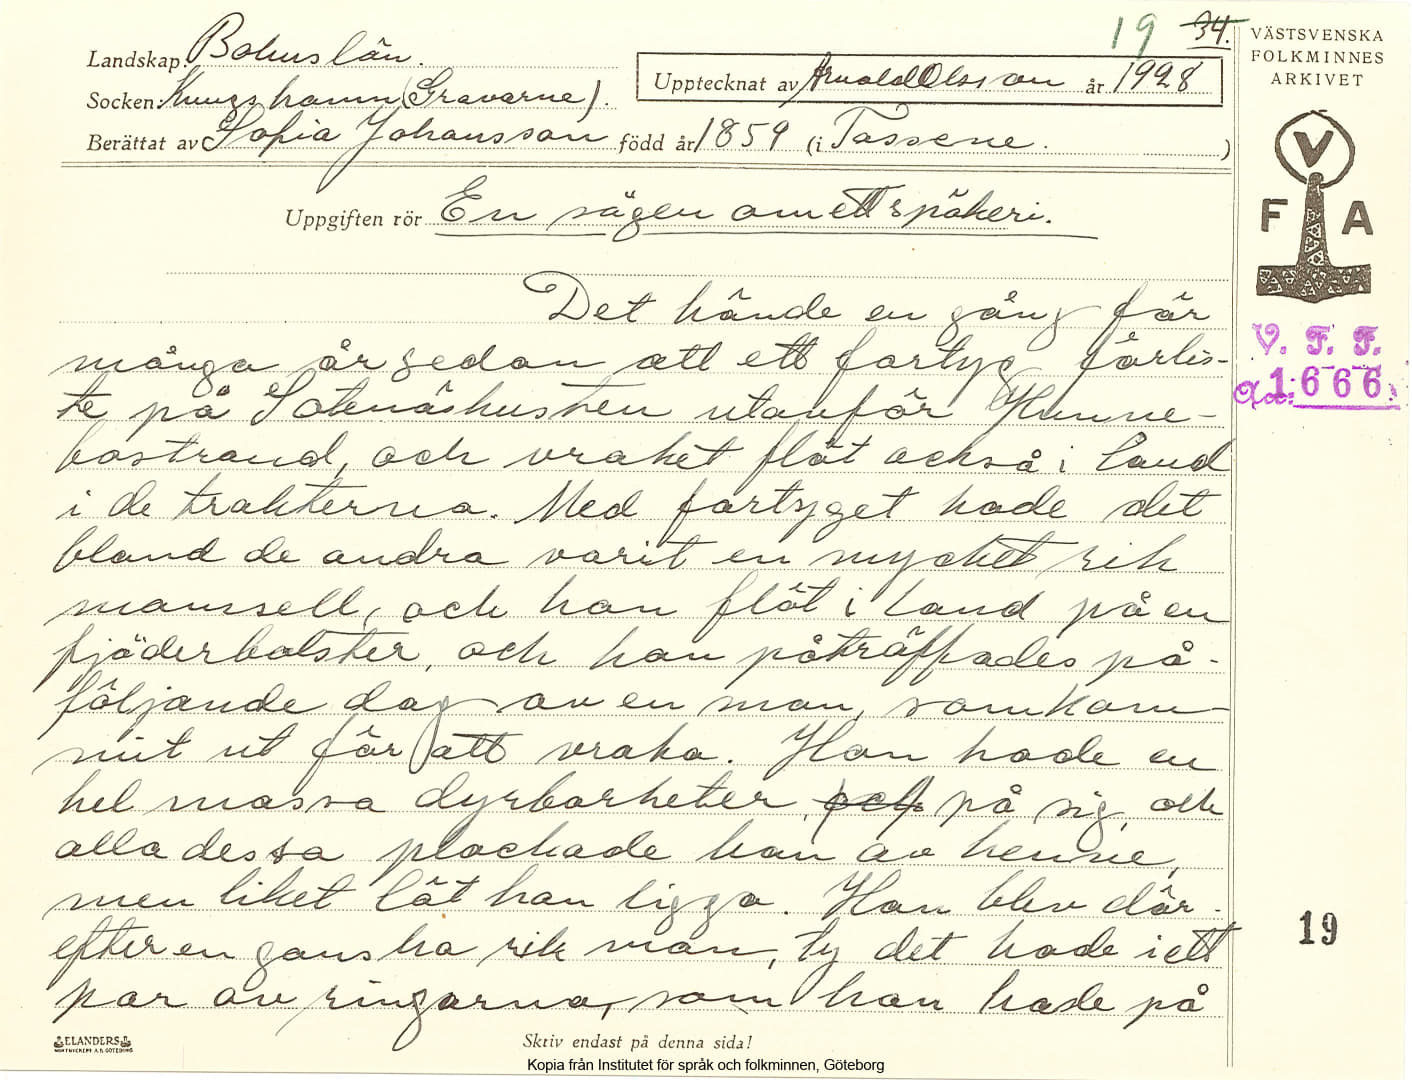 19 34.
Landskap: Bohuslän.
Socken: Kungshamn (Gravarne).
Berättat av Sofia Johansson född år 1859 (i Tossene. )
Upptecknat av Arnold Olsson år 1928
VÄSTSVENSKA
FOLKMINNES
ARKIVET
V
F A
V. F. F.
1666.
Uppgiften rör En sägen om ett spökeri.
Det hände en gång för
många år sedan att ett fartyg förlis-
te på Sotenäskusten utanför Hunne-
bostrand, och vraket flöt också i land
i de trakterna. Med fartyget hade det
bland de andra varit en mycket rik
mamsell, och hon flöt i land på en
fjäderbolster, och hon påträffades på-
följande dag av en man, som kom-
mit ut för att vraka. Hon hade en
hel massa dyrbarheter, och på sig, och
alla dessa plockade han av henne,
men liket lät han ligga. Han blev där-
efter en ganska rik man, ty det hade i ett
par av ringarna, som hon hade på
19
ELANDERS
BOKTRYCKERI A.B. GÖTEBORG
Skriv endast på denna sida!
Kopia från Institutet för språk och folkminnen, Göteborg